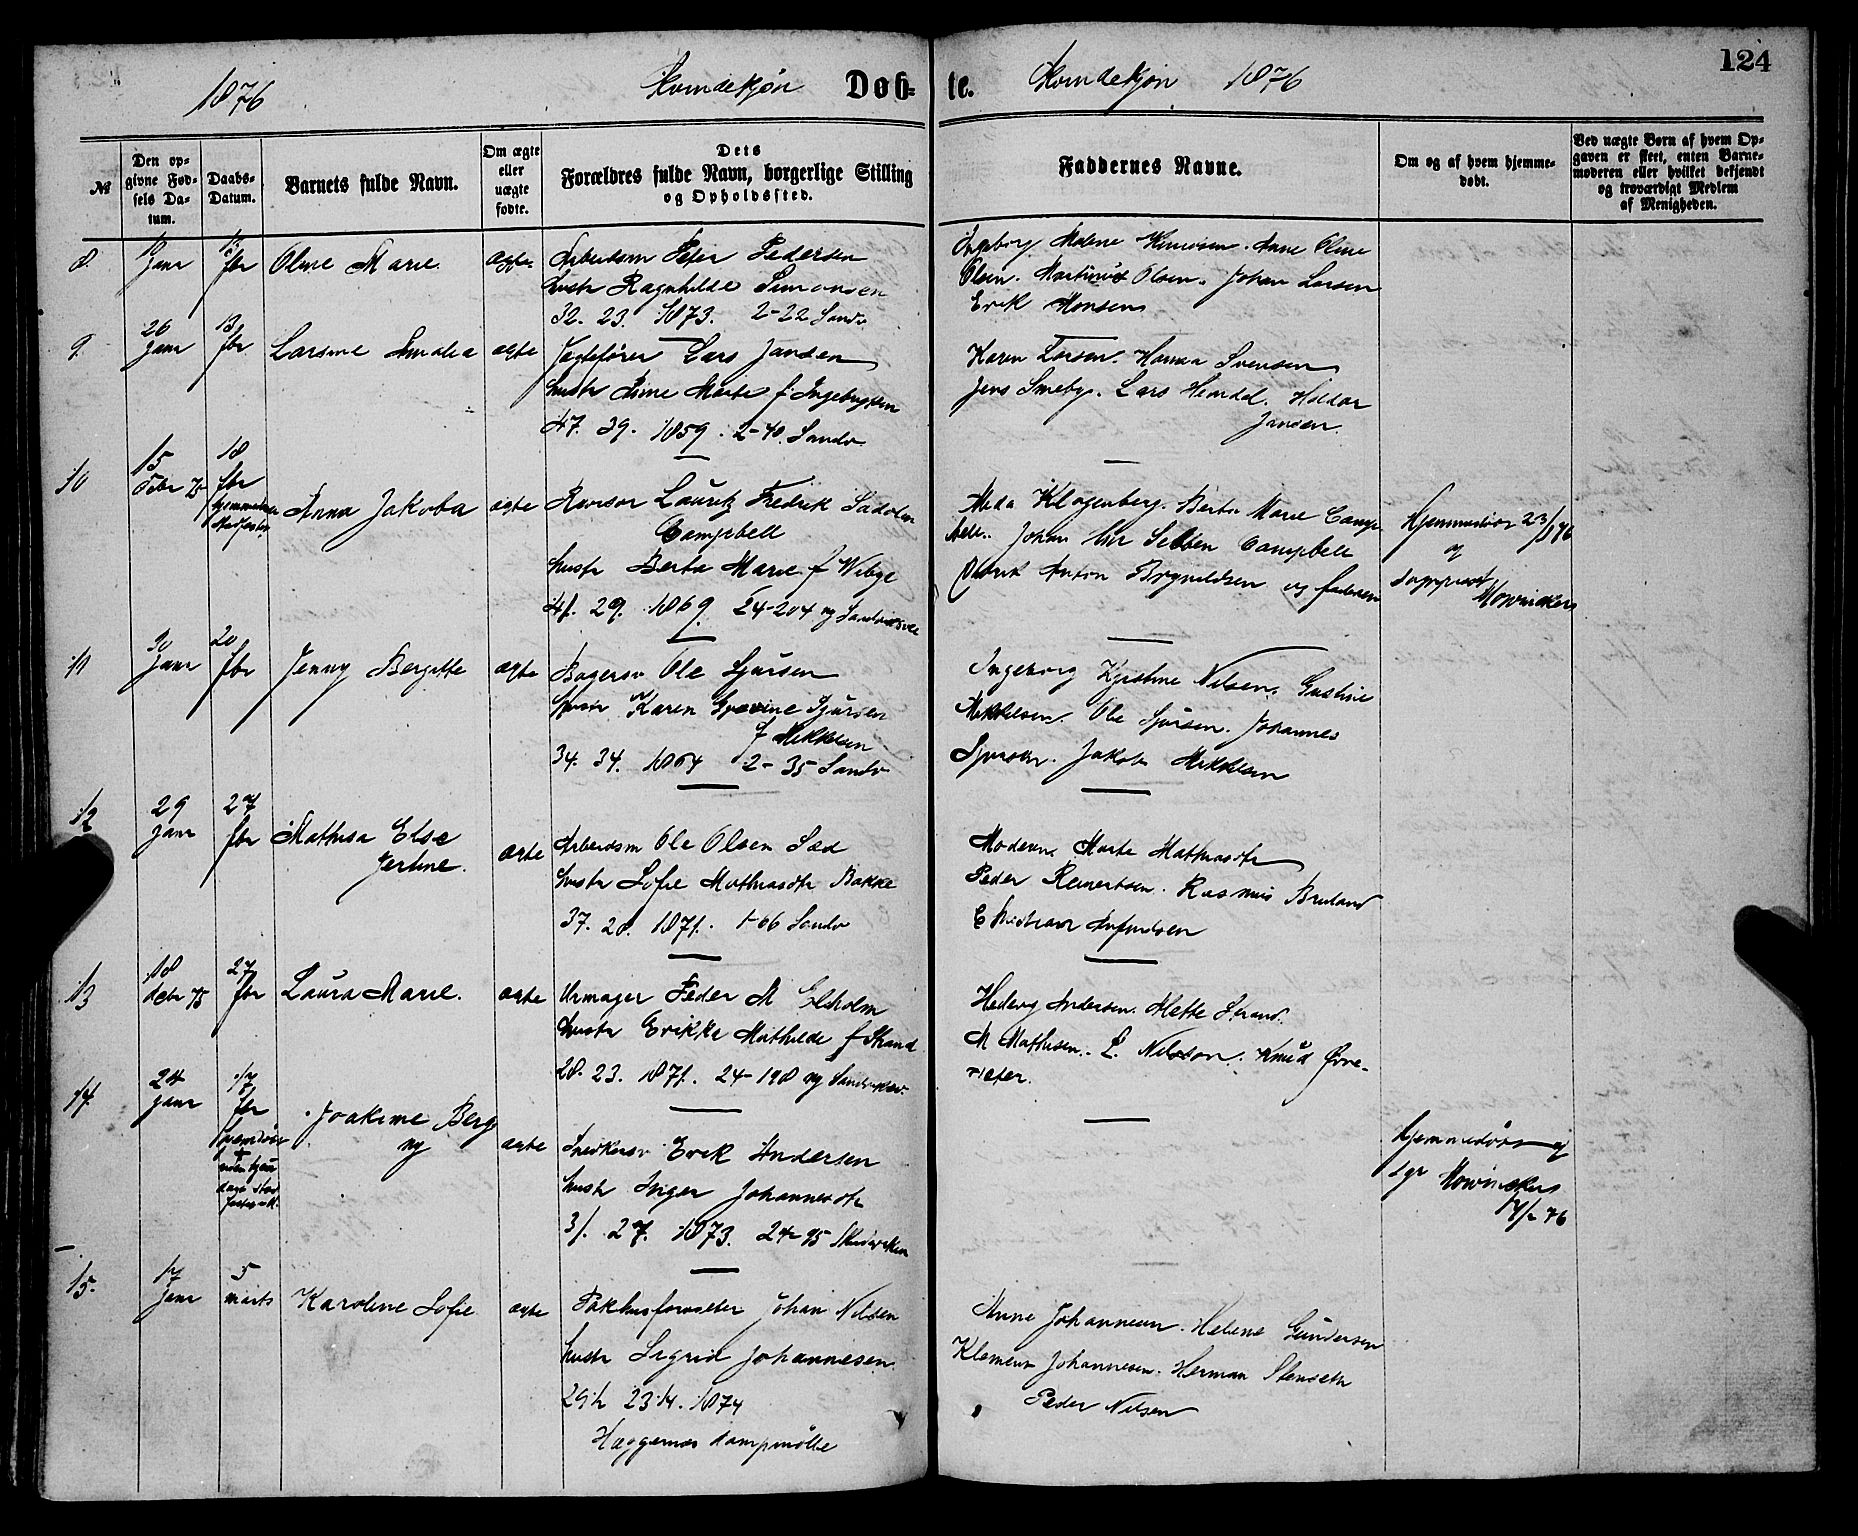 124
1876 Kvindekjøn Døb- te. Kvindekjøn 1876
№
Den op-
givne Fød-
sels Da-
tum.
Daabs-
Datum.
Barnets fulde Navn.
Om ægte
eller
uægte
fødte.
Dets
Forældres fulde Navn, borgerlige Stilling
og Opholdssted.
Faddernes Navne.
Om og af hvem hjemme-
døbt.
Ved uægte Børn af hvem Op-
gaven er skeet, enten Barne-
moderen eller hvilket bekjendt
og troværdigt Medlem
af Menigheden.
8. Janr 13 fbr Oline Marie ægte Arbeidsm Peter Pedersen
hustr Ragnhilde Simonsen
32. 23. 1873. 2-22 Sandv
Ingeborg Malene Anne Oline
Olsen. Olsen. Johan Larsen
Erik Monsen
9. 26 Janr 13 fbr Larsine Amalia ægte Jægtefører Lars Jansen
hustr Anne Marte f Ingebrigtsen
47. 39. 1859. 2-40. Sandv
Karen Larsen. Hanna Svensen
Jens Smeby. Lars Hendal. Haldor
Jansen.
10 15 Debr 75 18 fbr
Anna Jakoba ægte Revisor Lauritz Fredrik Sadolin
Campbell
hustr Berta Marie f Wibye
41. 29. 1869. 24-204 ny Sandviksvei
Klogenberg. Berta Marie Camp-
bell. Johan Chr Selben Campbell
Anton Brynildsen og faderen
Hjemmedøbt 23/1 76
af
sogneprest
Mowinckel
11 30 Janr 20 fbr Jenny Bergitte ægte Bagersv Ole Sjursen
hustr Karen Sjursen
f Mikkelsen
34. 34. 1864 2-35 Sandv
Ingeborg Kjerstine Nilsen. Gustine
Mikkelsen. Ole Sjursen. Johannes
Sjursen. Jakob Mikkelsen
12 29 Janr 27 fbr Mathisa Else
Jertine. ægte Arbeidsm Ole Olsen Sæd
hustr Sofie Mathiasdtr Bakke
37. 28. 1871. 1-66 Sandv
Moderen. Marte Mathiasdtr
Peder Reinertsen. Rasmus Breland
Christian Anfindsen
13 18 debr 75 27 fbr Laura Marie. ægte Urmager Peder M Elsholm
hustr Erikke Mathilde f Strand
28. 23. 1871. 24-198 ny Sandviksv.
Hedevig Andersen. Mette Strand.
M Mathisen. L. Nilsson. Knud Øvre-
sæter.
14. 24 Janr 17 fbr
Joakime Berg
ny ægte Snedkersv Erik Andersen
hustr Inger Johannesdtr
31. 27. 1873. 24-95 Skudeviken
hjemmedøbt af
sgr Mowinckel
17/2 76
15. 17 Janr 5 marts Karoline Sofie ægte Pakhusforvalter Johan Nilsen
hustr Sigrid Johannesen
29½ 23¼. 1874
Hæggernæs dampmølle
Anne Johannesen. Helene Gundersen
Klement Johannesen. Herman Stenseth
Peder Nilsen